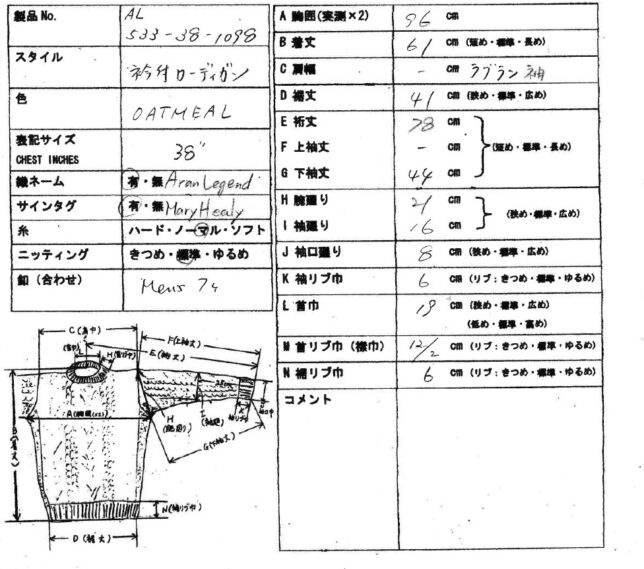 製品No.
AL
533-38-1098
スタイル
衿付カーディガン
色
OATMEAL
表記サイズ
CHEST INCHES
38"
織ネーム
有・無 Aran Legend
サインタグ
有・無 Mary Healy
糸
ハード・ノーマル・ソフト
ニッティング
きつめ・標準・ゆるめ
釦(合わせ)
Mens 7ヶ
A 胸囲(実測×2)
96 cm
B 着丈
61 cm (短め・標準・長め)
C 肩幅
- cm ラグラン袖
D 裾丈
41 cm (狭め・標準・広め)
E 裄丈
78 cm
F 上袖丈
- cm (短め・標準・長め)
G 下袖丈
44 cm
H 腕廻り
21 cm
I 袖廻り
16 cm
(狭め・標準・広め)
J 袖口廻り
8 cm (狭め・標準・広め)
K 袖リブ巾
6 cm (リブ:きつめ・標準・ゆるめ)
L 首巾
19 cm (狭め・標準・広め)
(低め・標準・高め)
M 首リブ巾(襟巾)
12/2 cm (リブ:きつめ・標準・ゆるめ)
N 裾リブ巾
6 cm (リブ:きつめ・標準・ゆるめ)
コメント
C(肩巾)
F(上袖丈)
E(裄丈)
A(胸囲)
B(着丈)
H
I
G(下袖丈)
N(裾リブ巾)
D(裾丈)